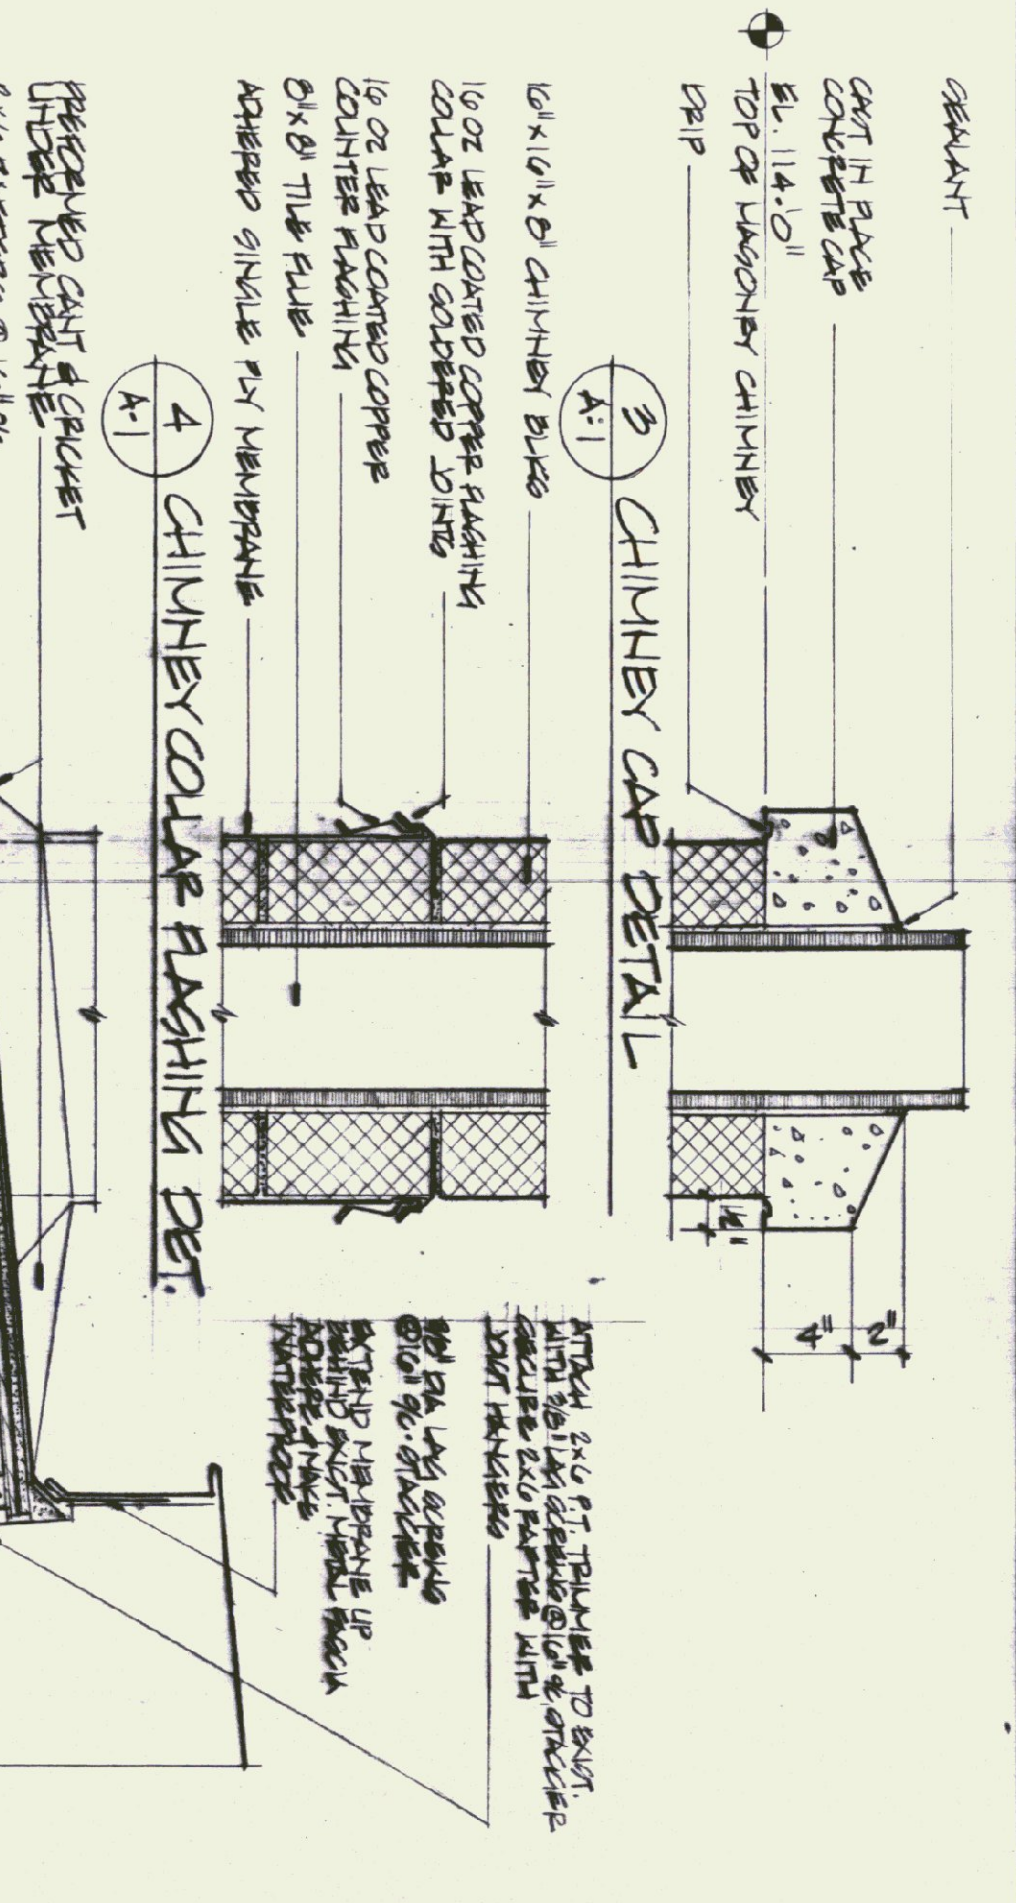 SEALANT
CAST IN PLACE
CONCRETE CAP
EL. 114'-0"
TOP OF MASONRY CHIMNEY
DRIP
4"
2"
1/2"
3
A-1
CHIMNEY CAP DETAIL
16" x 16" x 8" CHIMNEY BLKS
16 OZ LEAD COATED COPPER FLASHING
COLLAR WITH SOLDERED JOINTS
16 OZ LEAD COATED COPPER
COUNTER FLASHING
8" x 8" TILE FLUE
ADHERED SINGLE PLY MEMBRANE
4
A-1
CHIMNEY COLLAR FLASHING DET.
ATTACH 2x6 P.T. TRIMMER TO EXIST.
WITH 3/8" LAG SCREWS @ 16" O/C, STAGGER
SECURE 2x6 RAFTER WITH
JOIST HANGERS
DIA LAG SCREWS
@ 16" O/C. STAGGER
EXTEND MEMBRANE UP
BEHIND EXIST. METAL FASCIA
ADHERE & MAKE
WATERPROOF
PREFORMED CANT & CRICKET
UNDER MEMBRANE